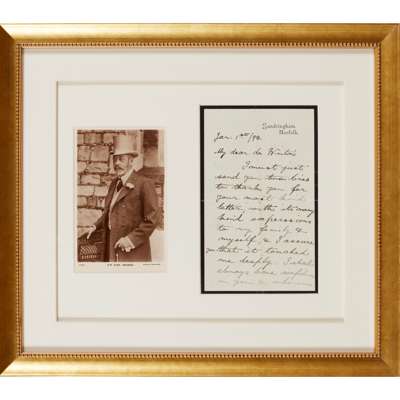 Sandringham,
Norfolk.
Jan. 1st/92.
My dear de Winton
I must just
send you two lines
to thank you for
your most kind
letter with its many
kind expressions
to my family &
myself, & I assure
you that it touched
me deeply. I shall
always have
in you